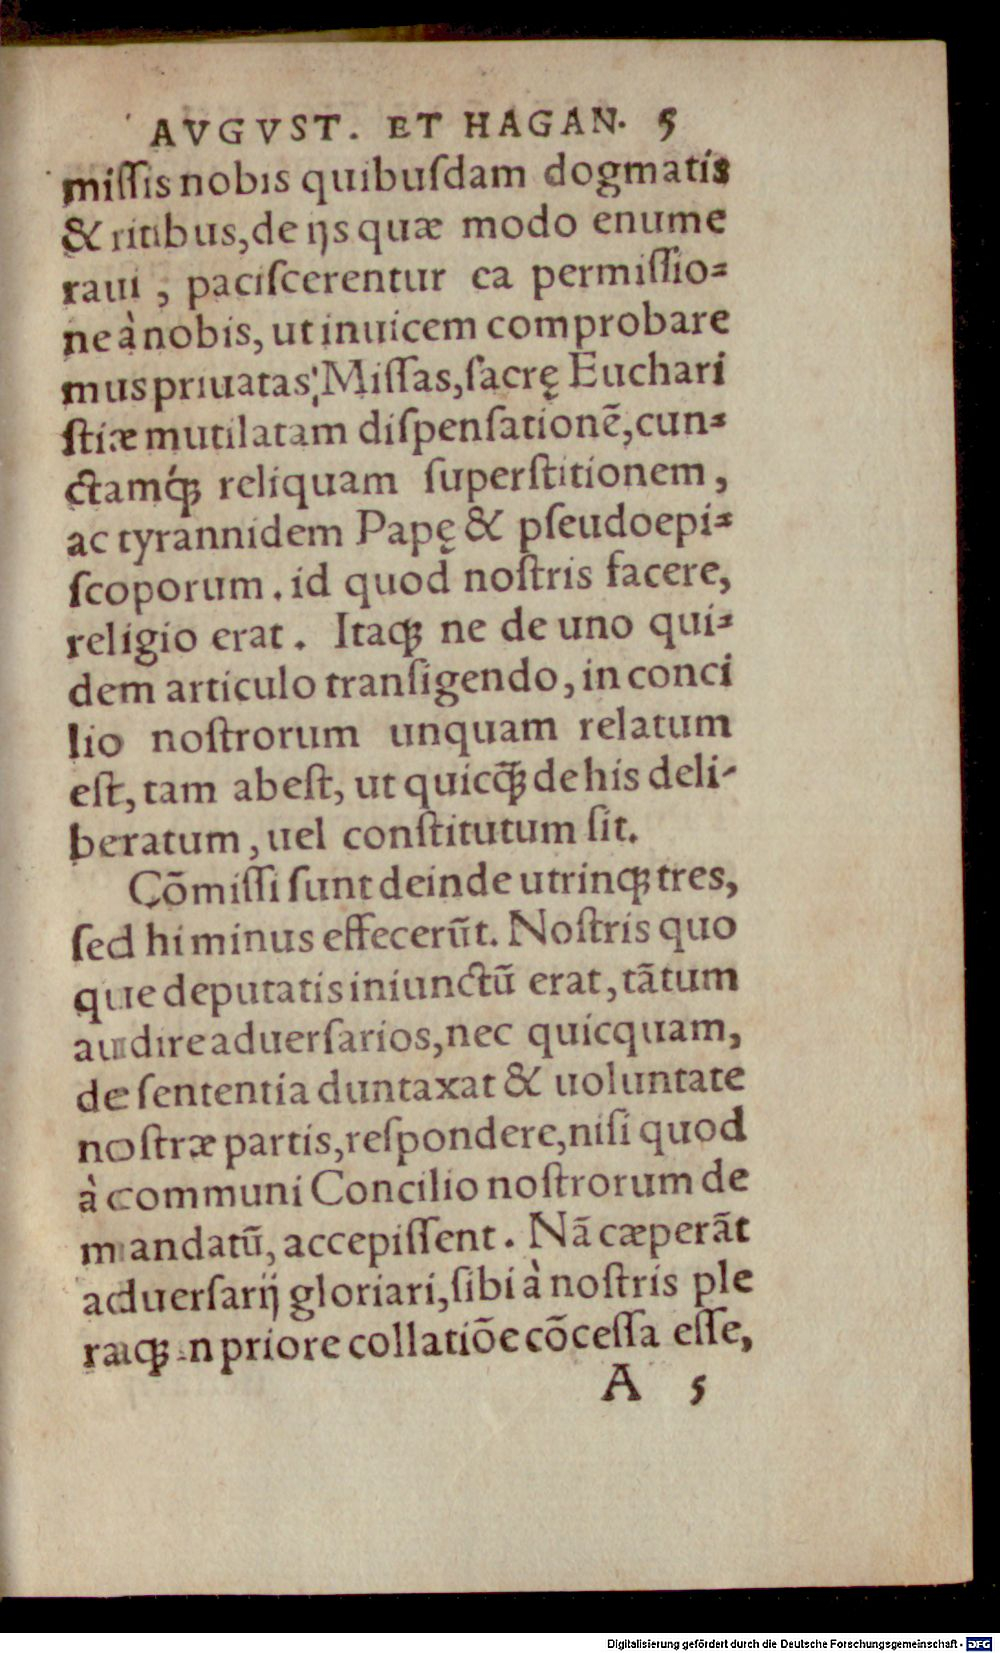 AVGVST. ET HAGAN. 5
miſſis nobis quibuſdam dogmatis
& ritibus, de ijs quæ modo enume
raui, paciſcerentur ea permiſſio⸗
ne à nobis, ut inuicem comprobare
mus priuatas Miſſas, ſacrę Euchari
ſtiæ mutilatam diſpenſationē, cun⸗
ctamq́ꝫ reliquam ſuperſtitionem,
ac tyrannidem Papę & pſeudoepi⸗
ſcoporum. id quod noſtris facere,
religio erat. Itaqꝫ ne de uno qui⸗
dem articulo tranſigendo, in conci
lio noſtrorum unquam relatum
eſt, tam abeſt, ut quicq̄ꝫ de his deli-
beratum, uel conſtitutum ſit.
Cōmiſſi ſunt deinde utrinqꝫ tres,
ſed hi minus effecerūt. Noſtris quo
que deputatis iniunctū erat, tātum
audire aduerſarios, nec quicquam,
de ſententia duntaxat & uoluntate
noſtræ partis, reſpondere, niſi quod
à communi Concilio noſtrorum de
mandatū, accepiſſent. Nā cæperāt
aduerſarij gloriari, ſibi à noſtris ple
raqꝫ in priore collatiōe cōceſſa eſſe,
A 5
Digitalisierung gefördert durch die Deutsche Forschungsgemeinschaft - DFG